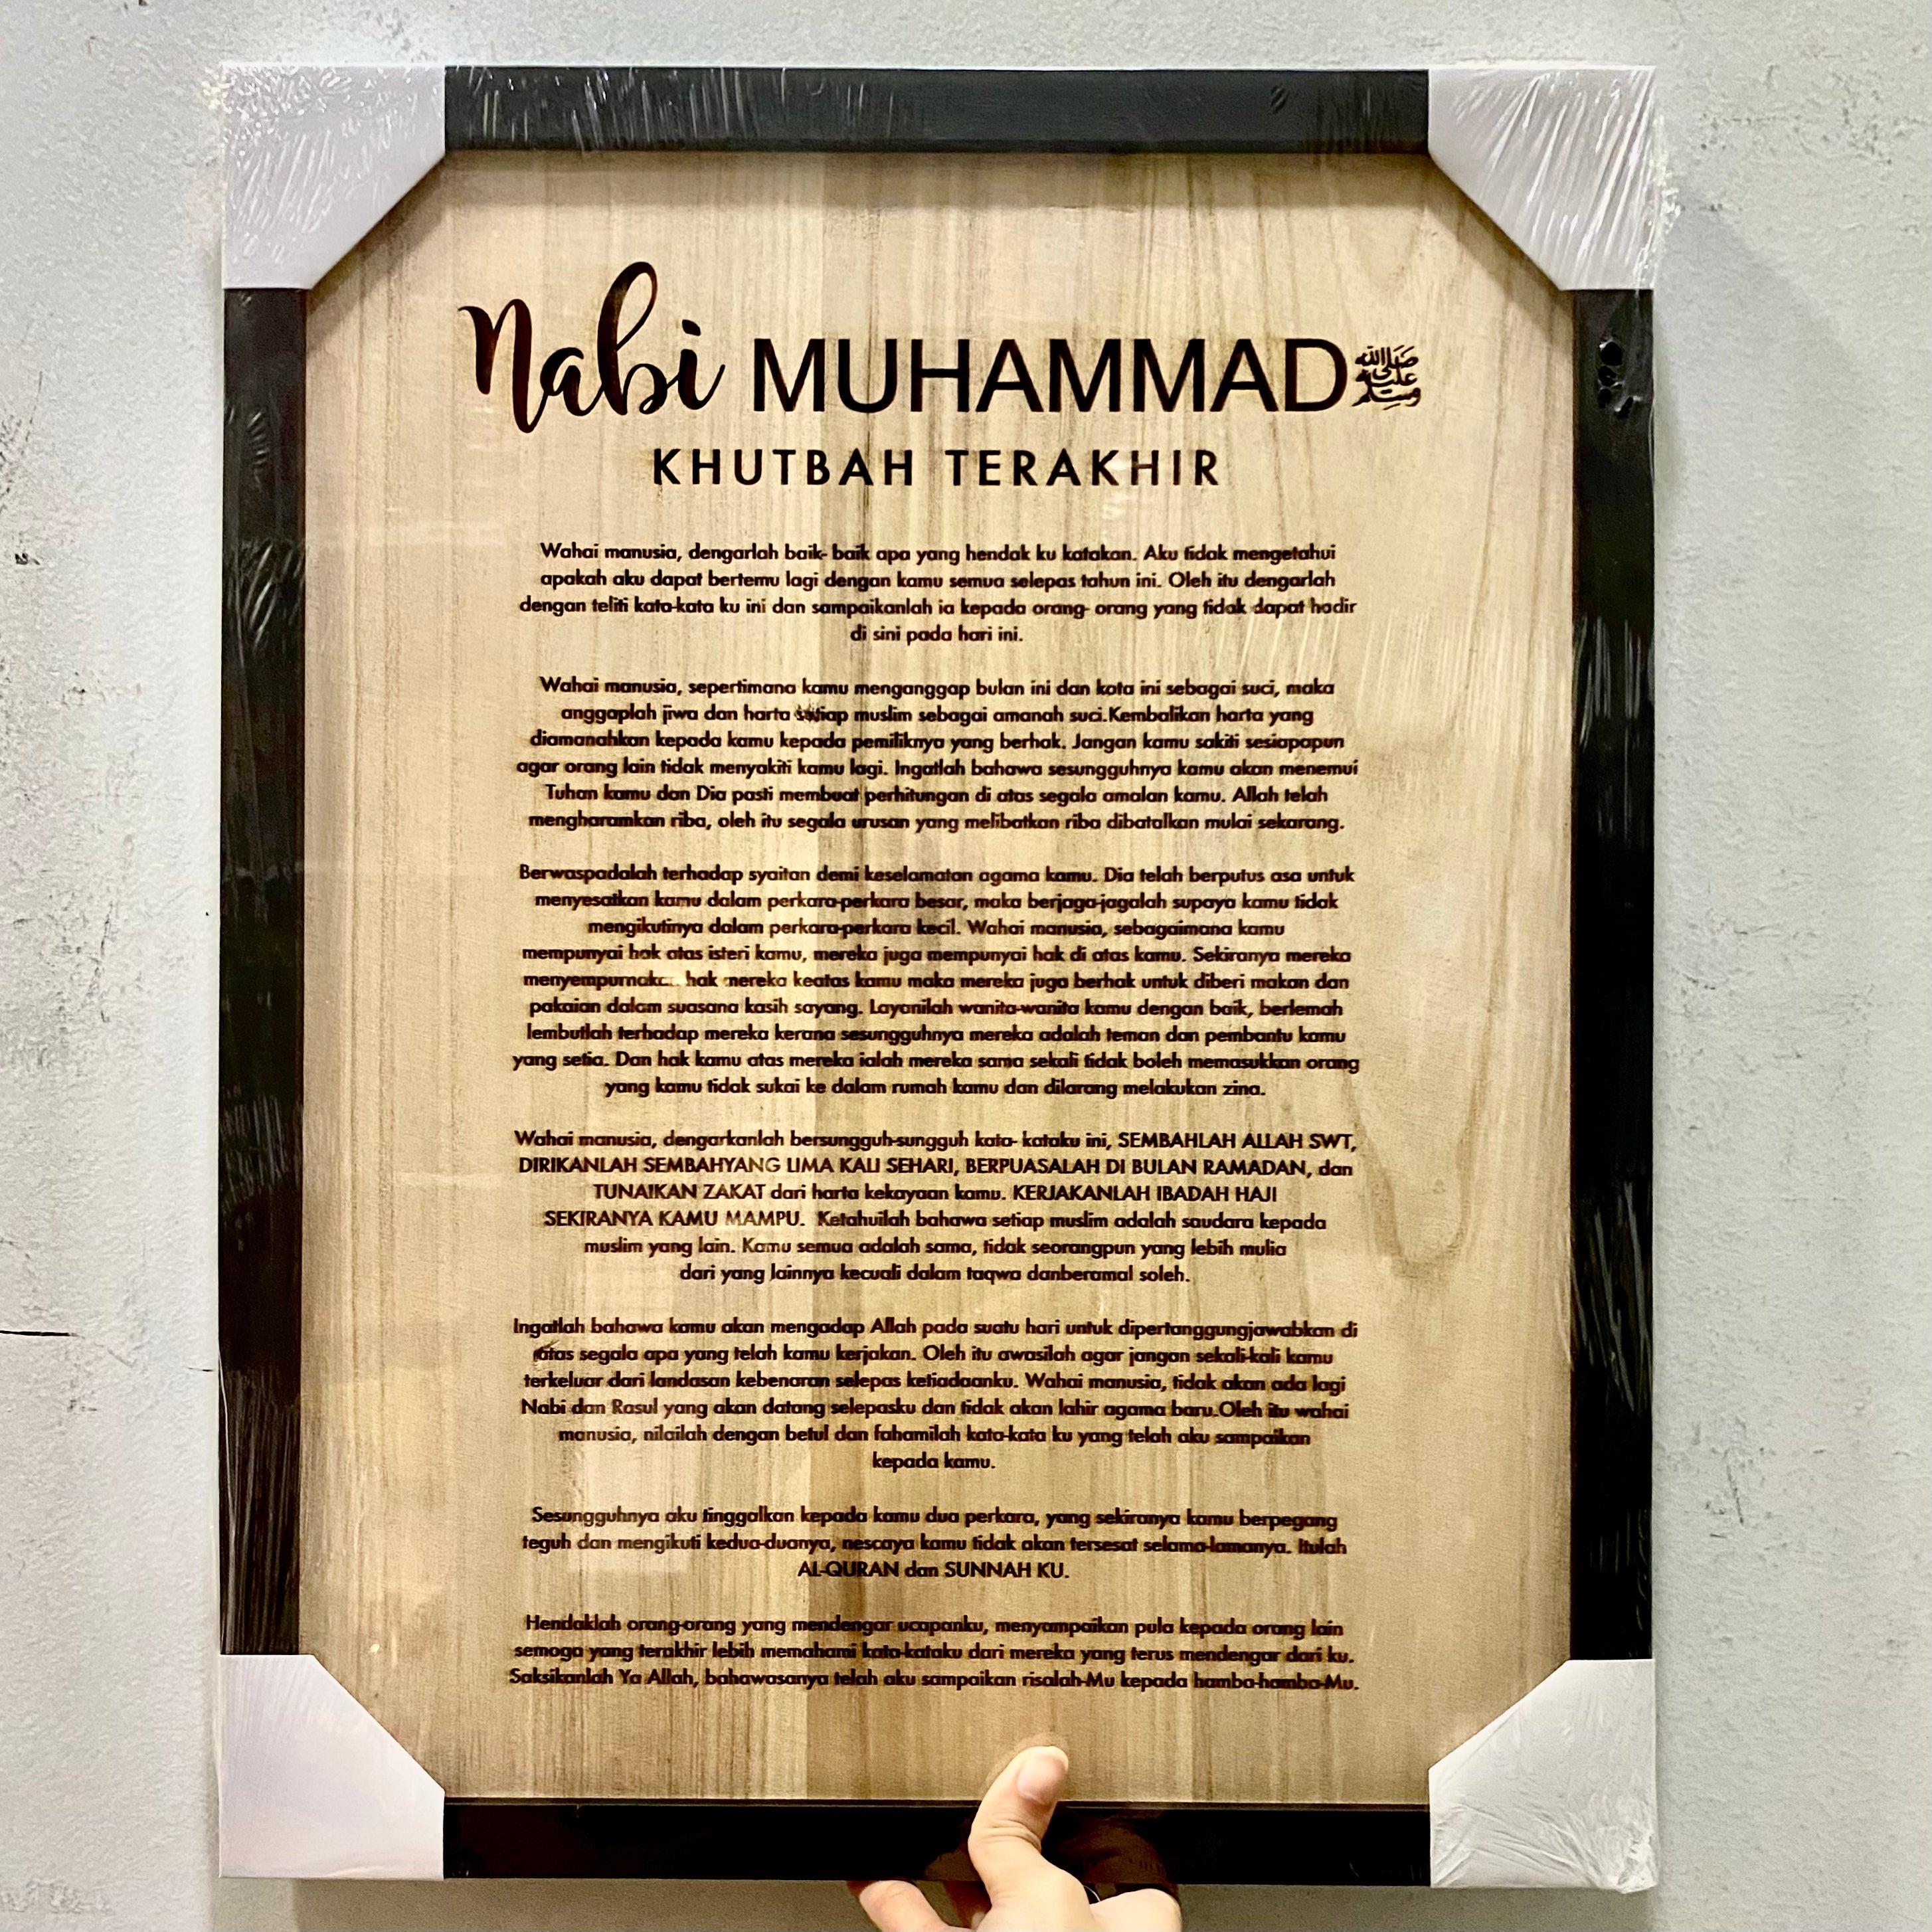 Nabi MUHAMMAD ﷺ
KHUTBAH TERAKHIR
Wahai manusia, dengarlah baik- baik apa yang hendak ku katakan. Aku tidak mengetahui
apakah aku dapat bertemu lagi dengan kamu semua selepas tahun ini. Oleh itu dengarlah
dengan teliti kata-kata ku ini dan sampaikanlah ia kepada orang- orang yang tidak dapat hadir
di sini pada hari ini.
Wahai manusia, sepertimana kamu menganggap bulan ini dan kota ini sebagai suci, maka
anggaplah jiwa dan harta setiap muslim sebagai amanah suci.Kembalikan harta yang
diamanahkan kepada kamu kepada pemiliknya yang berhak. Jangan kamu sakiti sesiapapun
agar orang lain tidak menyakiti kamu lagi. Ingatlah bahawa sesungguhnya kamu akan menemui
Tuhan kamu dan Dia pasti membuat perhitungan di atas segala amalan kamu. Allah telah
mengharamkan riba, oleh itu segala urusan yang melibatkan riba dibatalkan mulai sekarang.
Berwaspadalah terhadap syaitan demi keselamatan agama kamu. Dia telah berputus asa untuk
menyesatkan kamu dalam perkara-perkara besar, maka berjaga-jagalah supaya kamu tidak
mengikutinya dalam perkara-perkara kecil. Wahai manusia, sebagaimana kamu
mempunyai hak atas isteri kamu, mereka juga mempunyai hak di atas kamu. Sekiranya mereka
menyempurnakan hak mereka keatas kamu maka mereka juga berhak untuk diberi makan dan
pakaian dalam suasana kasih sayang. Layanilah wanita-wanita kamu dengan baik, berlemah
lembutlah terhadap mereka kerana sesungguhnya mereka adalah teman dan pembantu kamu
yang setia. Dan hak kamu atas mereka ialah mereka sama sekali tidak boleh memasukkan orang
yang kamu tidak sukai ke dalam rumah kamu dan dilarang melakukan zina.
Wahai manusia, dengarkanlah bersungguh-sungguh kata- kataku ini, SEMBAHLAH ALLAH SWT,
DIRIKANLAH SEMBAHYANG LIMA KALI SEHARI, BERPUASALAH DI BULAN RAMADAN, dan
TUNAIKAN ZAKAT dari harta kekayaan kamu. KERJAKANLAH IBADAH HAJI
SEKIRANYA KAMU MAMPU. Ketahuilah bahawa setiap muslim adalah saudara kepada
muslim yang lain. Kamu semua adalah sama, tidak seorangpun yang lebih mulia
dari yang lainnya kecuali dalam taqwa danberamal soleh.
Ingatlah bahawa kamu akan mengadap Allah pada suatu hari untuk dipertanggungjawabkan di
atas segala apa yang telah kamu kerjakan. Oleh itu awasilah agar jangan sekali-kali kamu
terkeluar dari landasan kebenaran selepas ketiadaanku. Wahai manusia, tidak akan ada lagi
Nabi dan Rasul yang akan datang selepasku dan tidak akan lahir agama baru.Oleh itu wahai
manusia, nilailah dengan betul dan fahamilah kata-kata ku yang telah aku sampaikan
kepada kamu.
Sesungguhnya aku tinggalkan kepada kamu dua perkara, yang sekiranya kamu berpegang
teguh dan mengikuti kedua-duanya, nescaya kamu tidak akan tersesat selama-lamanya. Itulah
AL-QURAN dan SUNNAH KU.
Hendaklah orang-orang yang mendengar ucapanku, menyampaikan pula kepada orang lain
semoga yang terakhir lebih memahami kata-kataku dari mereka yang terus mendengar dari ku.
Saksikanlah Ya Allah, bahawasanya telah aku sampaikan risalah-Mu kepada hamba-hamba-Mu.